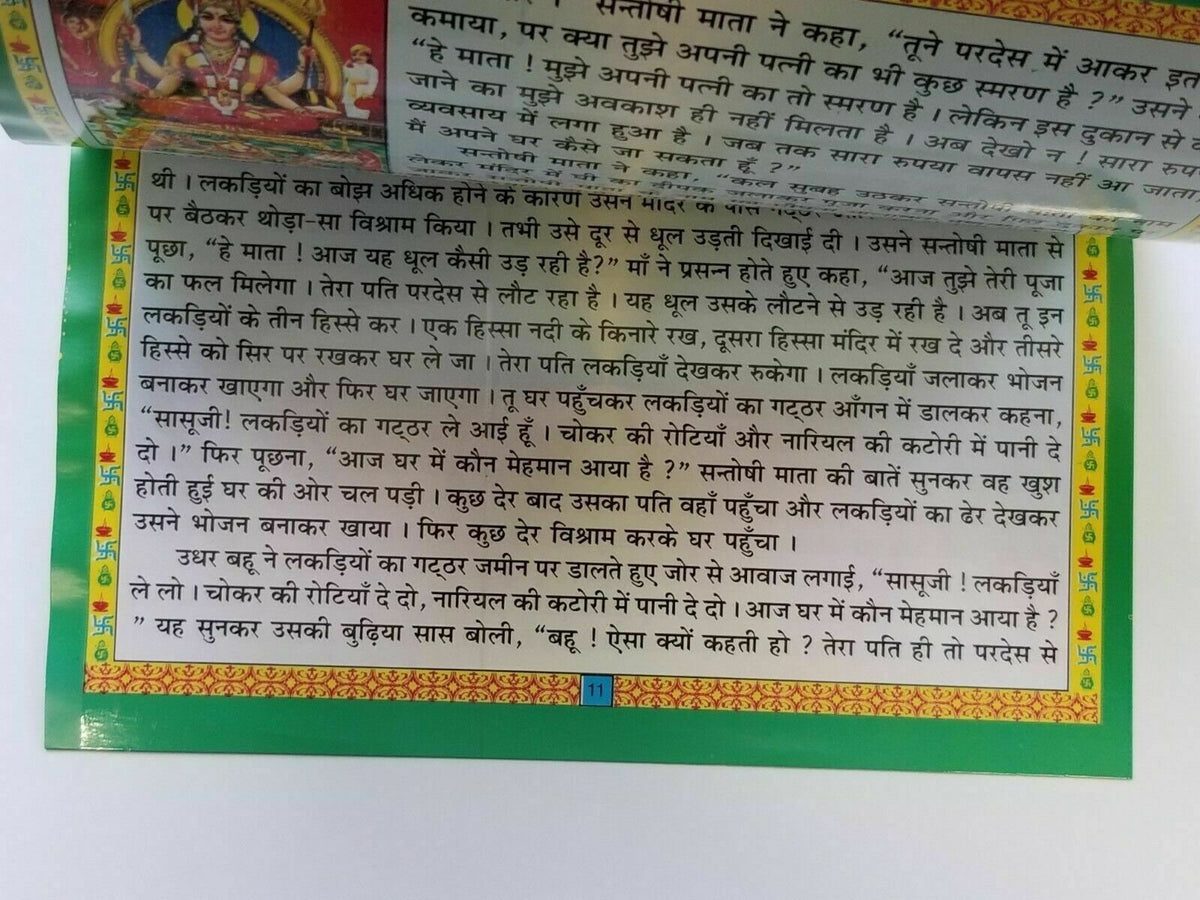 सन्तोषी माता ने कहा, “तूने परदेस में आकर
कमाया, पर क्या तुझे अपनी पत्नी का भी कुछ स्मरण है ?” उसने
“हे माता ! मुझे अपनी पत्नी का तो स्मरण है । लेकिन इस दुकान से
जाने का मुझे अवकाश ही नहीं मिलता है । अब देखो न ! सारा
व्यवसाय में लगा हुआ है । जब तक सारा रुपया वापस नहीं आ जाता
मैं अपने घर कैसे जा सकता हूँ ?”
सन्तोषी माता ने कहा, “कल सुबह उठकर सन्तोषी माता
थी । लकड़ियों का बोझ अधिक होने के कारण उसने मंदिर के पास
पर बैठकर थोड़ा-सा विश्राम किया । तभी उसे दूर से धूल उड़ती दिखाई दी । उसने सन्तोषी माता से
पूछा, “हे माता ! आज यह धूल कैसी उड़ रही है?” माँ ने प्रसन्न होते हुए कहा, “आज तुझे तेरी पूजा
का फल मिलेगा । तेरा पति परदेस से लौट रहा है । यह धूल उसके लौटने से उड़ रही है । अब तू इन
लकड़ियों के तीन हिस्से कर । एक हिस्सा नदी के किनारे रख, दूसरा हिस्सा मंदिर में रख दे और तीसरे
हिस्से को सिर पर रखकर घर ले जा । तेरा पति लकड़ियाँ देखकर रुकेगा । लकड़ियाँ जलाकर भोजन
बनाकर खाएगा और फिर घर जाएगा । तू घर पहुँचकर लकड़ियों का गट्ठर आँगन में डालकर कहना,
“सासूजी! लकड़ियों का गट्ठर ले आई हूँ । चोकर की रोटियाँ और नारियल की कटोरी में पानी दे
दो ।” फिर पूछना, “आज घर में कौन मेहमान आया है ?” सन्तोषी माता की बातें सुनकर वह खुश
होती हुई घर की ओर चल पड़ी । कुछ देर बाद उसका पति वहाँ पहुँचा और लकड़ियों का ढेर देखकर
उसने भोजन बनाकर खाया । फिर कुछ देर विश्राम करके घर पहुँचा ।
उधर बहू ने लकड़ियों का गट्ठर जमीन पर डालते हुए जोर से आवाज लगाई, “सासूजी ! लकड़ियाँ
ले लो । चोकर की रोटियाँ दे दो, नारियल की कटोरी में पानी दे दो । आज घर में कौन मेहमान आया है ?
” यह सुनकर उसकी बुढ़िया सास बोली, “बहू ! ऐसा क्यों कहती हो ? तेरा पति ही तो परदेस से
11